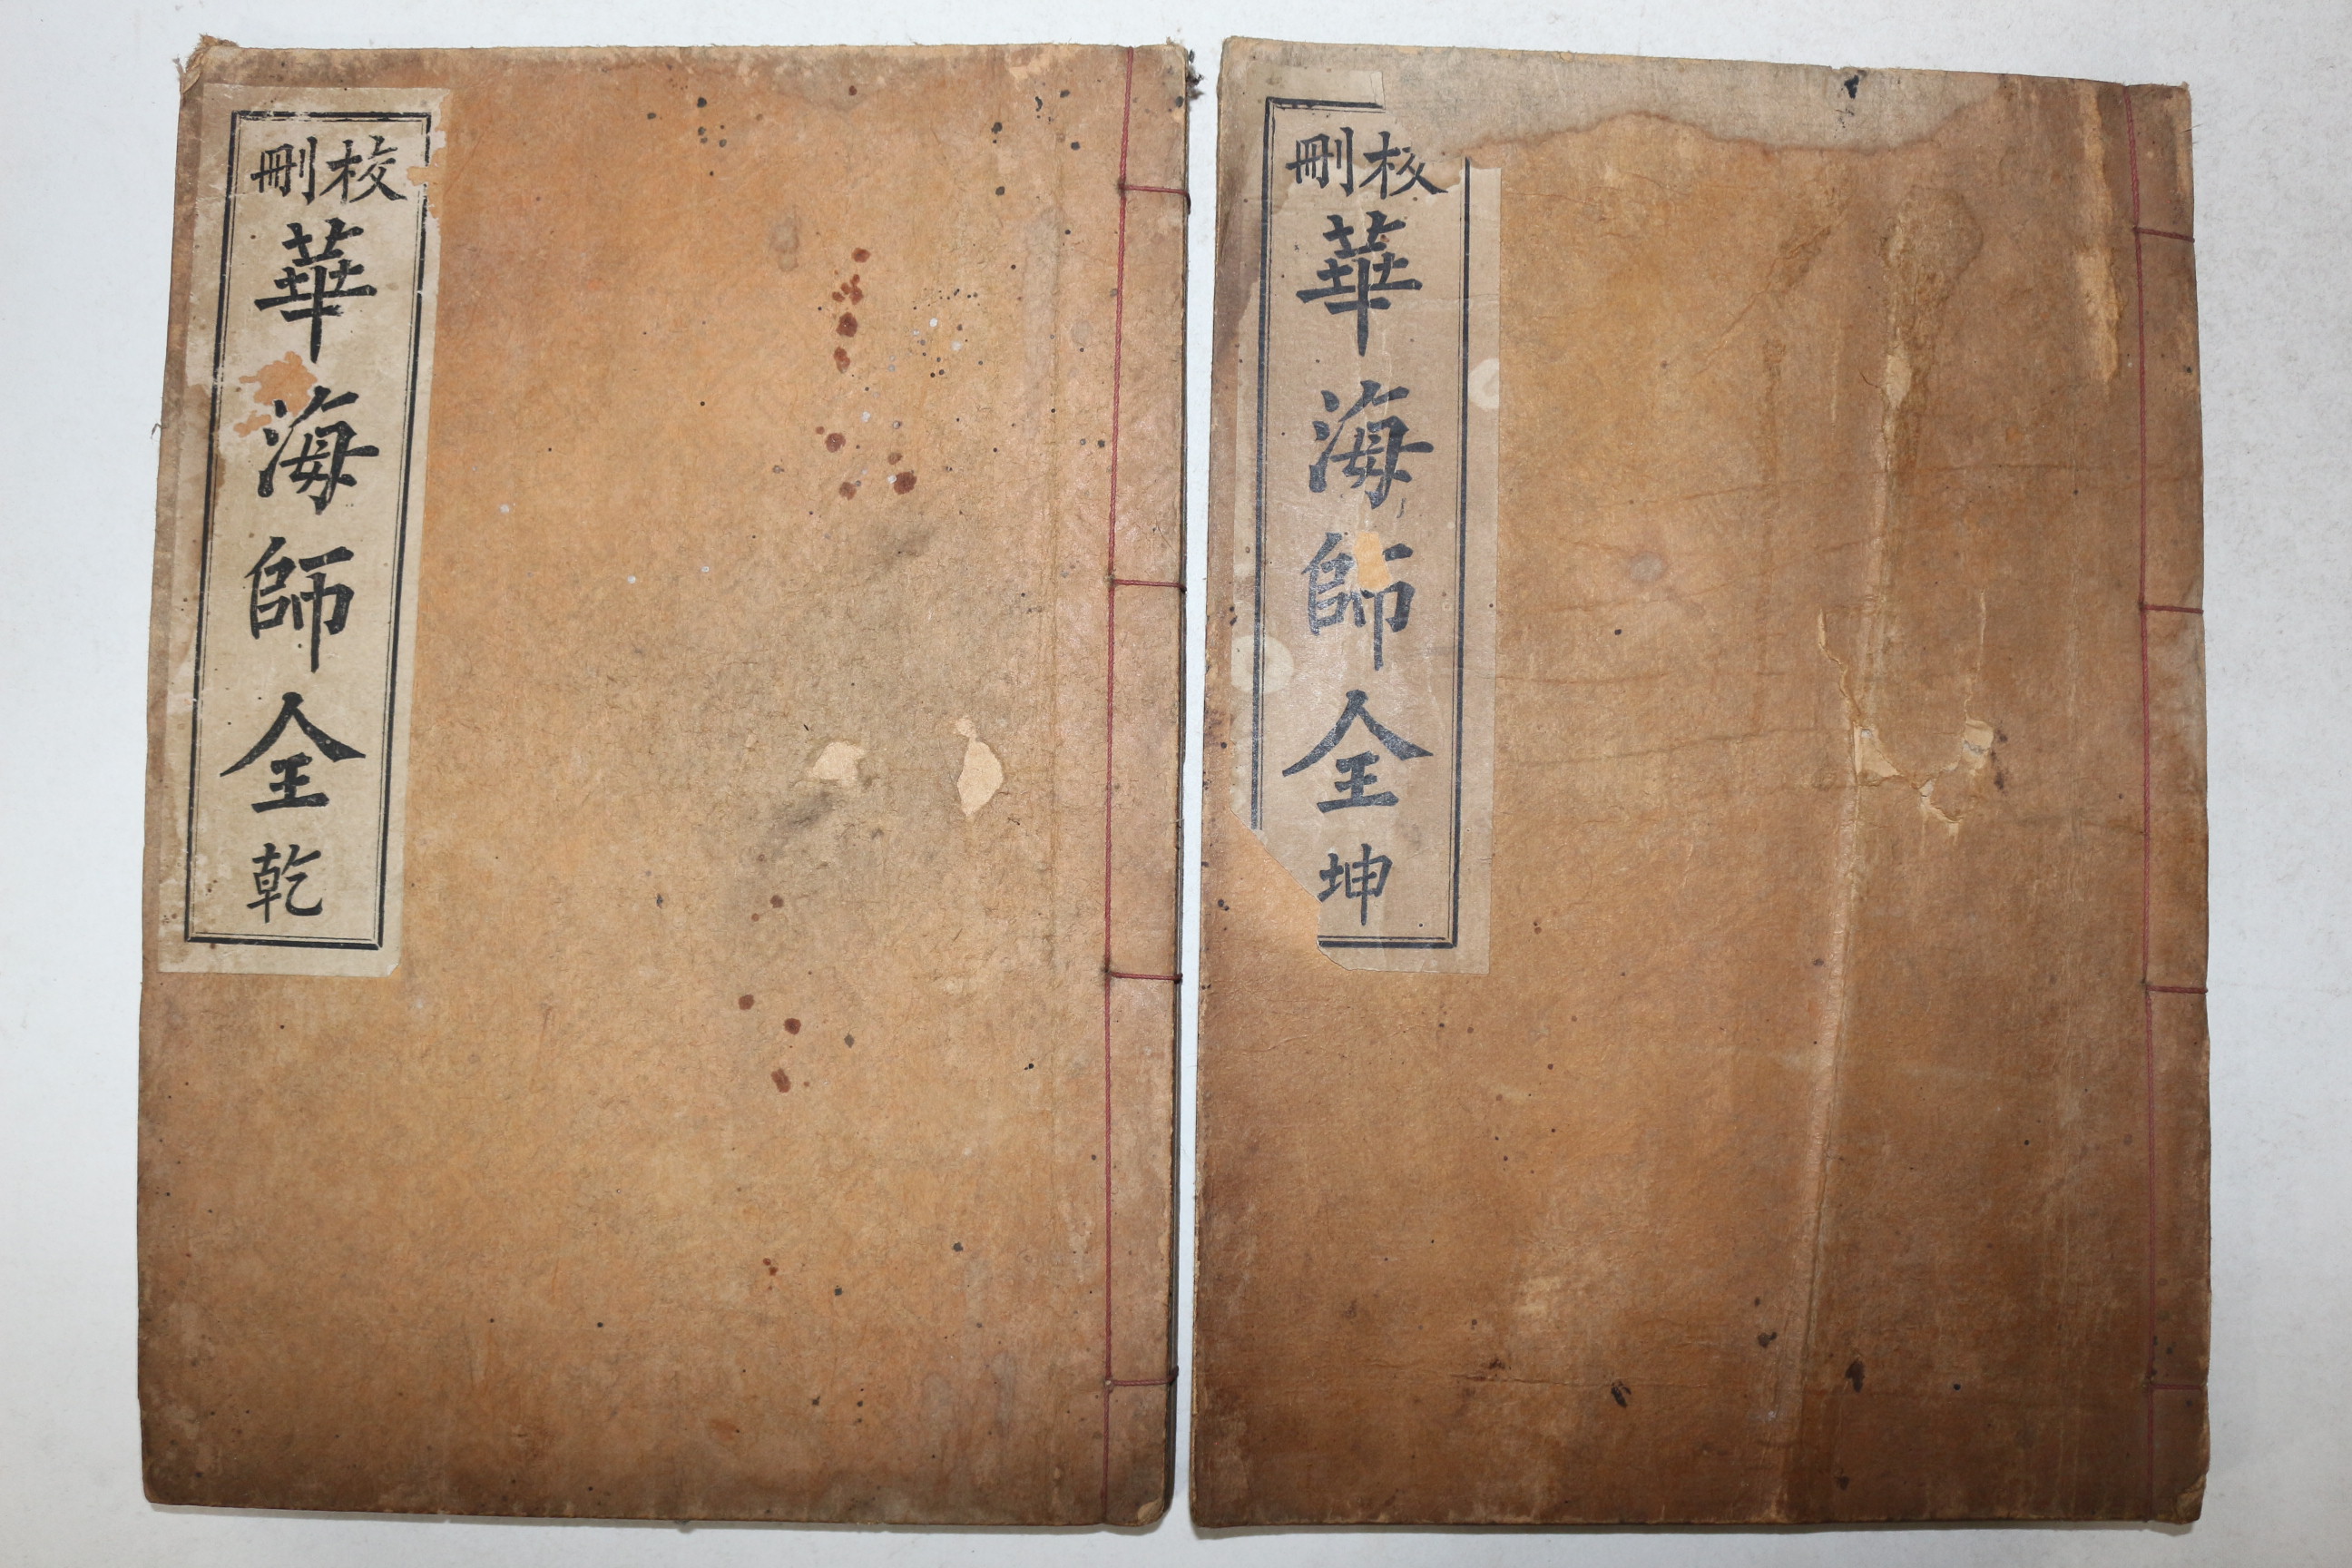 校刪
華海師全
乾
校刪
華海師全
坤